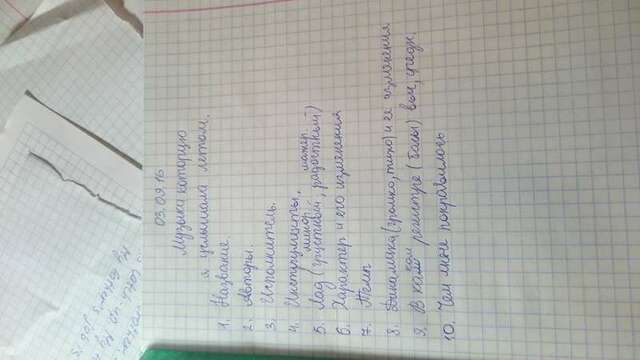 03.09.16
Музыка которую
я услышала летом.
1. Название.
2. Авторы.
3. Исполнитель.
4. Инструменты.
минор мажор
5. Лад (грустный, радостный)
6. Характер и его изменения
7. Темп
8. Динамика (громко, тихо) и её изменения
9. В каком регистре (басы) выс, средн.
10. Чем мне понравилось